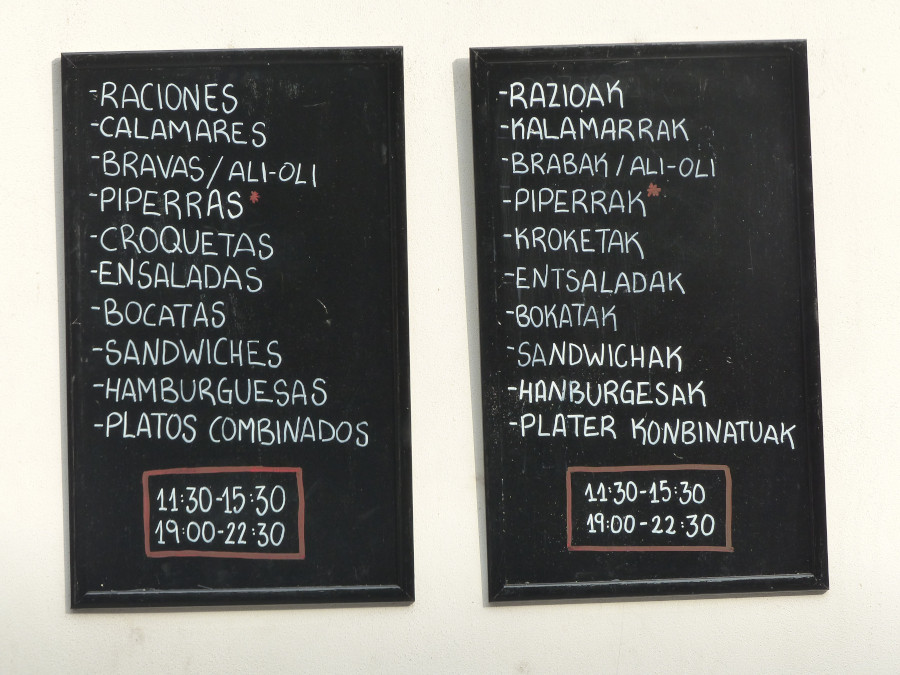 -RACIONES
-CALAMARES
-BRAVAS/ALI-OLI
-PIPERRAS*
-CROQUETAS
-ENSALADAS
-BOCATAS
-SANDWICHES
-HAMBURGUESAS
-PLATOS COMBINADOS
11:30-15:30
19:00-22:30
-RAZIOAK
-KALAMARRAK
-BRABAK/ALI-OLI
-PIPERRAK*
-KROKETAK
-ENTSALADAK
-BOKATAK
-SANDWICHAK
-HANBURGESAK
-PLATER KONBINATUAK
11:30-15:30
19:00-22:30